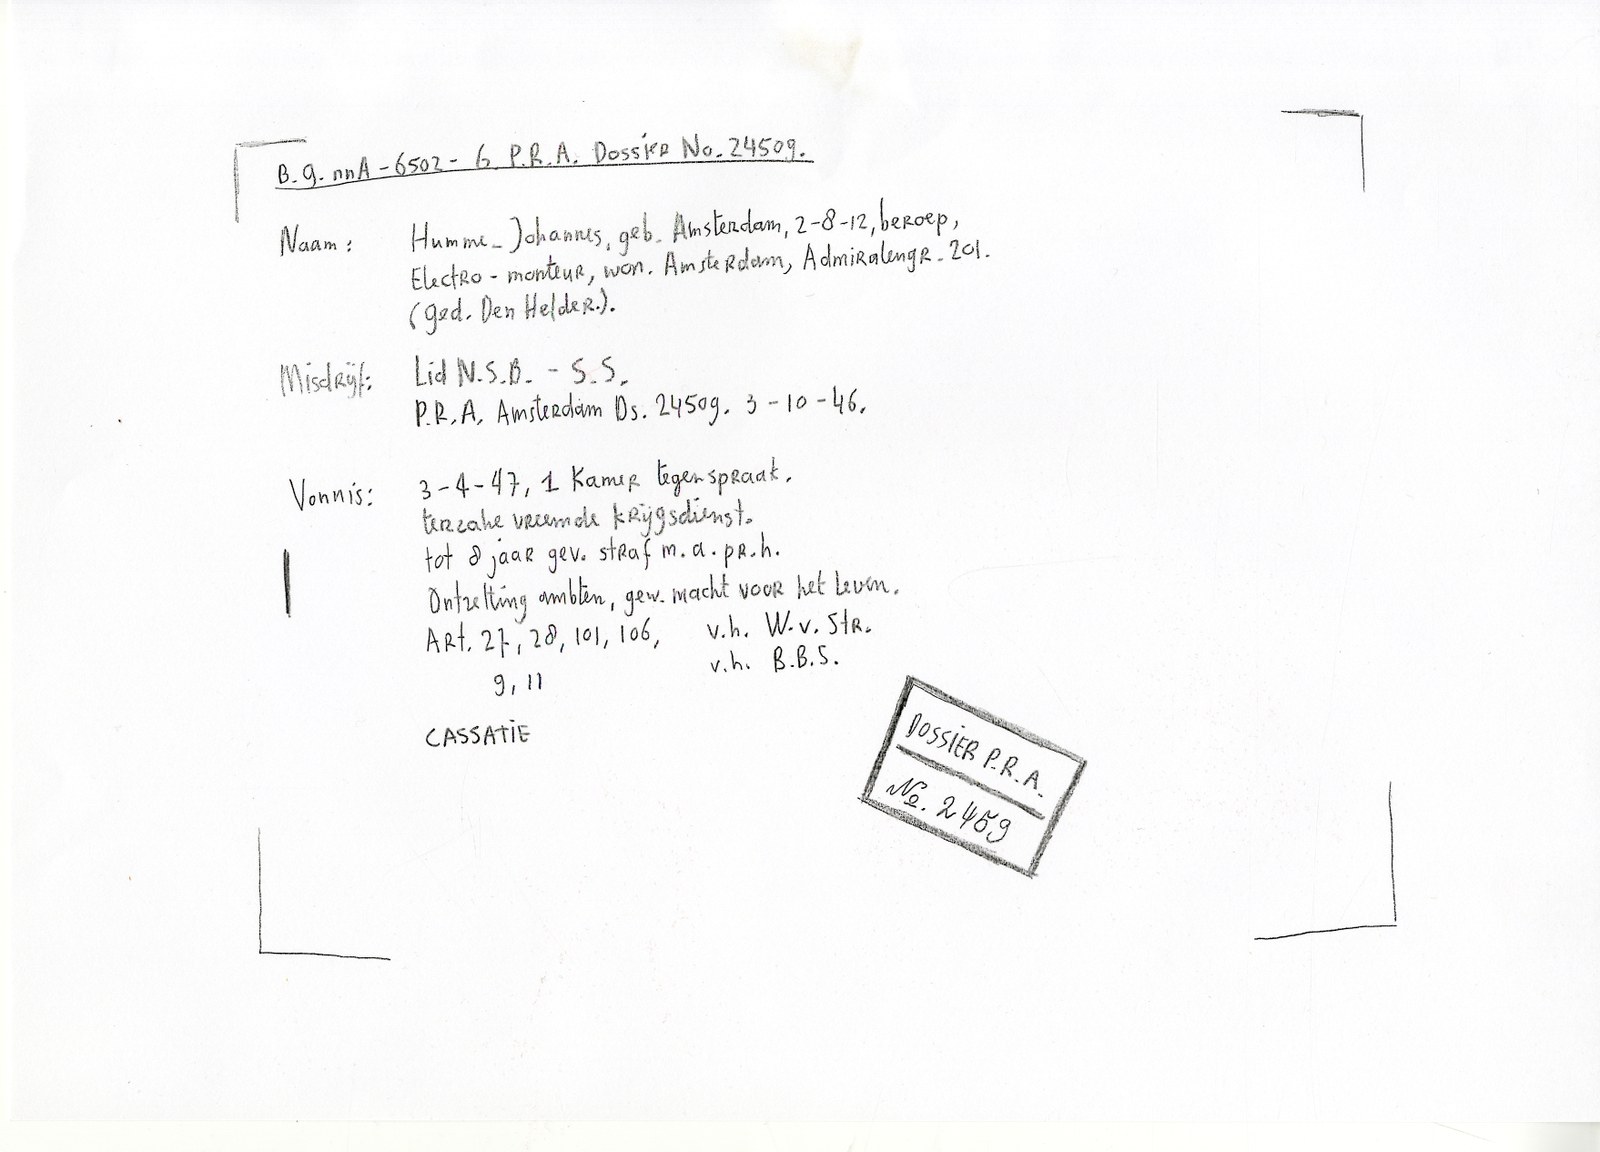 B.G. nnA - 6502 - 6 P.R.A. Dossier No. 24509.
Naam: Humme - Johannes, geb. Amsterdam, 2-8-12, beroep,
Electro - monteur, won. Amsterdam, Admiralengr. 201.
(ged. Den Helder.).
Misdrijf: Lid N.S.B. - S.S.
P.R.A. Amsterdam Ds. 24509. 3-10-46.
Vonnis: 3-4-47, 1 Kamer tegenspraak.
terzake vreemde krijgsdienst.
tot 8 jaar gev. straf m.a.pr.h.
Ontzetting ambten, gew. macht voor het leven.
Art. 27, 28, 101, 106, v.h. W.v. Str.
9, 11 v.h. B.B.S.
CASSATIE
DOSSIER P.R.A.
No. 2459